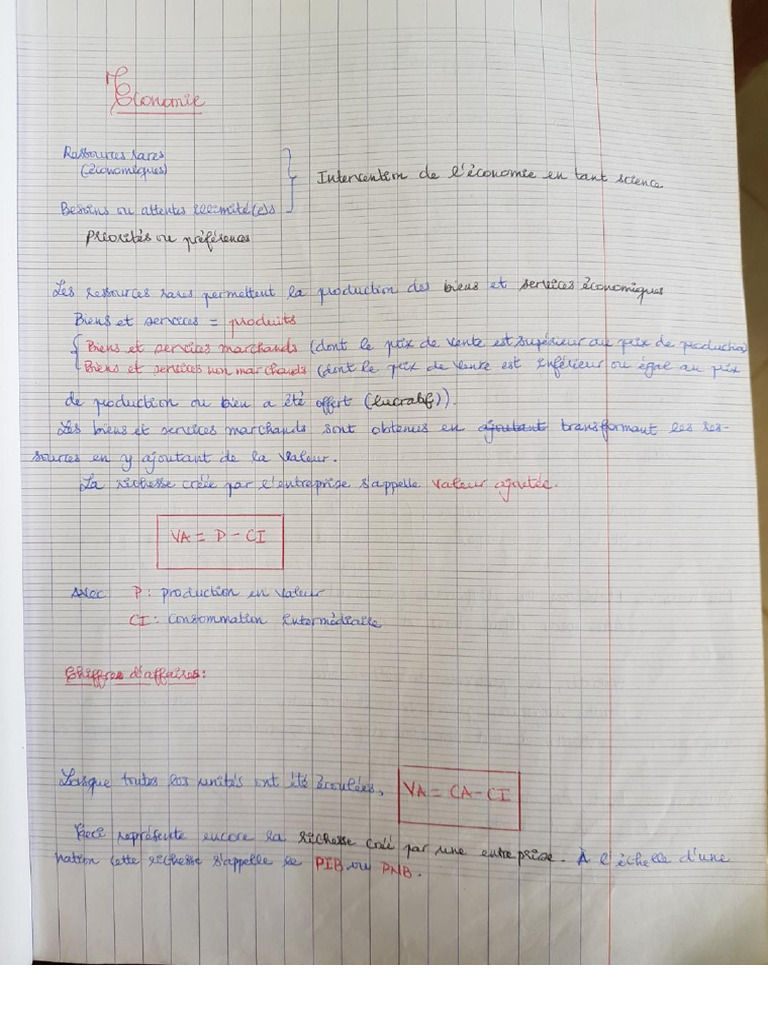 Economie
Ressources rares
(économiques)
Intervention de l'économie en tant science
Besoins ou attentes illimité(e)s
Priorités ou préférences
Les ressources rares permettent la production des biens et services économiques
Biens et services = produits
Biens et services marchands (dont le prix de vente est supérieur au prix de production)
Biens et services non marchands (dont le prix de vente est inférieur ou égal au prix
de production ou bien a été offert (lucratif)).
Les biens et services marchands sont obtenus en ajoutant transformant les res-
sources en y ajoutant de la valeur.
La richesse créée par l'entreprise s'appelle valeur ajoutée.
VA = P - CI
Avec P : production en valeur
CI : Consommation Intermédiaire
Chiffres d'affaires :
Lorsque toutes les unités ont été écoulées, VA = CA - CI
Ceci représente encore la richesse créé par une entreprise. À l'échelle d'une
nation cette richesse s'appelle le PIB ou PNB.